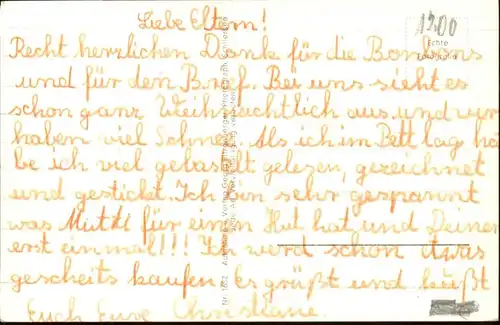 Liebe Eltern!
1200
Echte
Recht herzlichen Dank für die Bonbons
und für den Brief. Bei uns sieht es
schon ganz Weihnachtlich aus und wir
haben viel Schnee. Als ich im Bett lag ha
be ich viel gebastelt gelesen, gezeichnet
und gestickt. Ich bin sehr gespannt
was Mutti für einen Hut hat und Deiner
erst einmal!!! Ihr werd schon etwas
gescheits kaufen Es grüßt und küßt
Euch Eure Christiane.